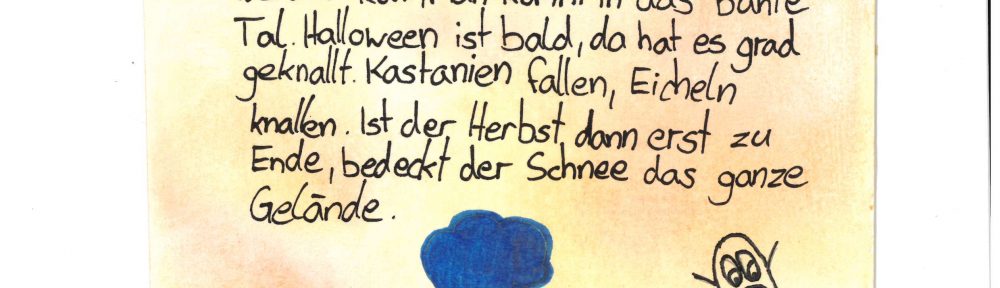 das bunte
Tal. Halloween ist bald, da hat es grad
geknallt. Kastanien fallen, Eicheln
knallen. Ist der Herbst dann erst zu
Ende, bedeckt der Schnee das ganze
Gelände.